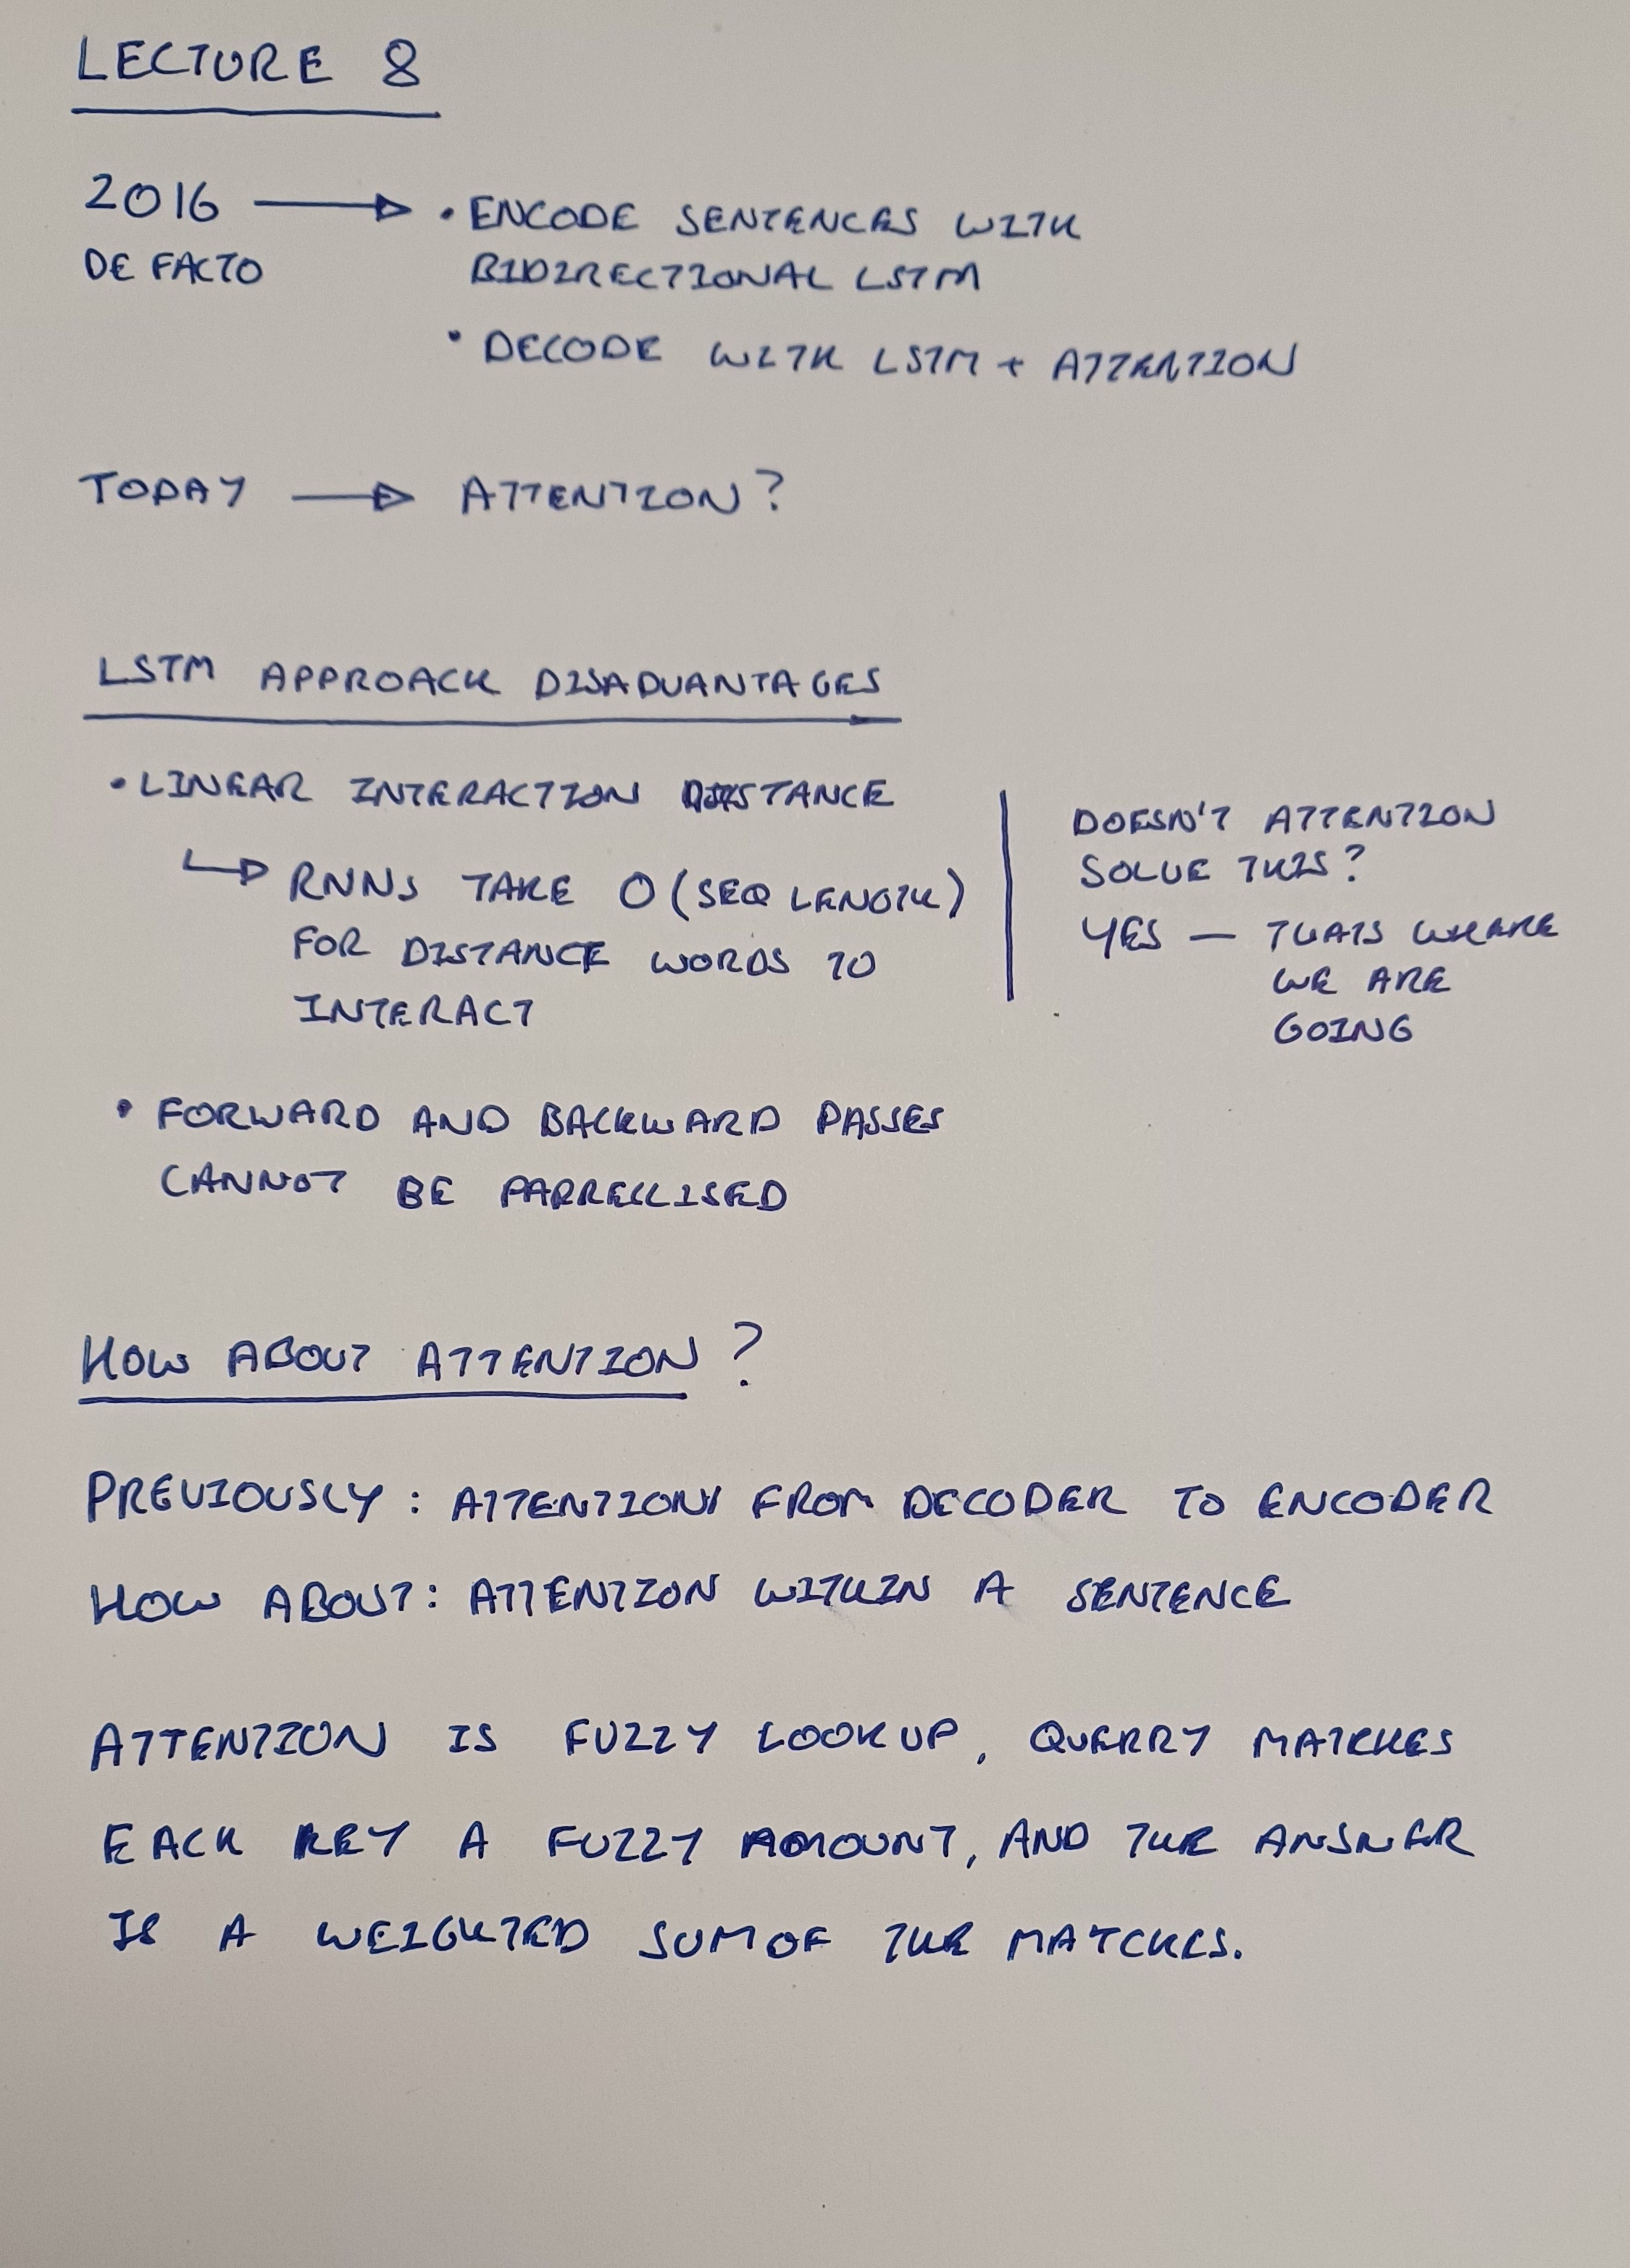 LECTURE 8
2016 → • ENCODE SENTENCES WITH
DE FACTO BIDIRECTIONAL LSTM
• DECODE WITH LSTM + ATTENTION
TODAY → ATTENTION?
LSTM APPROACH DISADVANTAGES
• LINEAR INTERACTION DISTANCE
↳ RNNS TAKE O(SEQ LENGTH)
FOR DISTANCE WORDS TO
INTERACT
DOESN'T ATTENTION
SOLVE THIS?
YES — THATS WHERE
WE ARE
GOING
• FORWARD AND BACKWARD PASSES
CANNOT BE PARRELLISED
HOW ABOUT ATTENTION?
PREVIOUSLY: ATTENTION FROM DECODER TO ENCODER
HOW ABOUT: ATTENTION WITHIN A SENTENCE
ATTENTION IS FUZZY LOOKUP, QUERRY MATCHES
EACH KEY A FUZZY AMOUNT, AND THE ANSWER
IS A WEIGHTED SUM OF THE MATCHES.